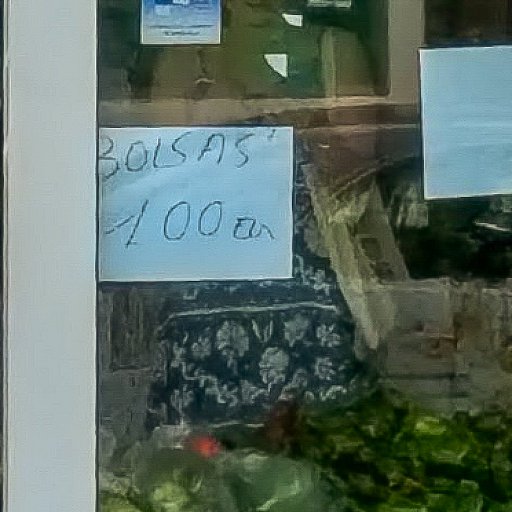 BOLSAS
100